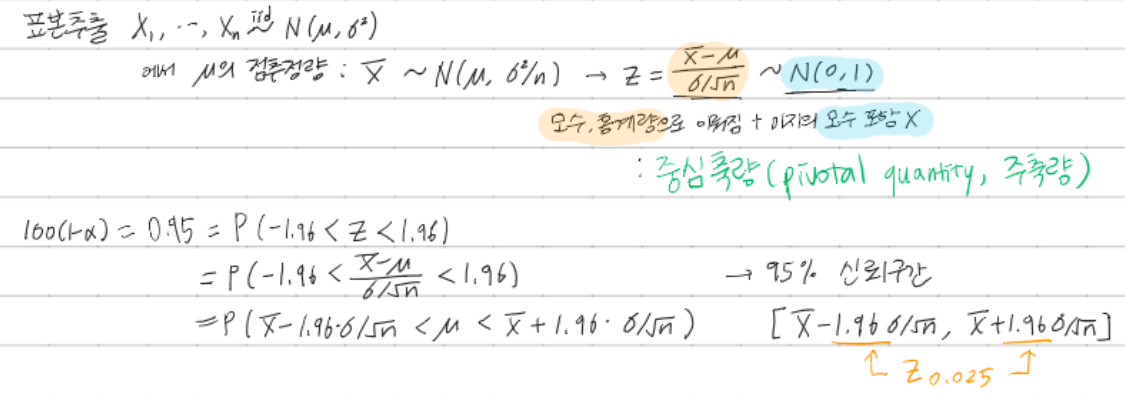 표본추출 X₁, ⋯, Xₙ iid~ N(μ, σ²)
에서 μ의 점추정량 : X̄ ~ N(μ, σ²/n) → Z = (X̄-μ)/(σ/√n) ~ N(0,1)
모수, 통계량으로 이뤄짐 + 미지의 모수 포함 X
: 중심축량 (pivotal quantity, 주축량)
100(1-α) = 0.95 = P(-1.96 < Z < 1.96)
= P(-1.96 < (X̄-μ)/(σ/√n) < 1.96) → 95% 신뢰구간
= P(X̄-1.96·σ/√n < μ < X̄+1.96·σ/√n) [X̄-1.96 σ/√n, X̄+1.96 σ/√n]
Z₀.₀₂₅